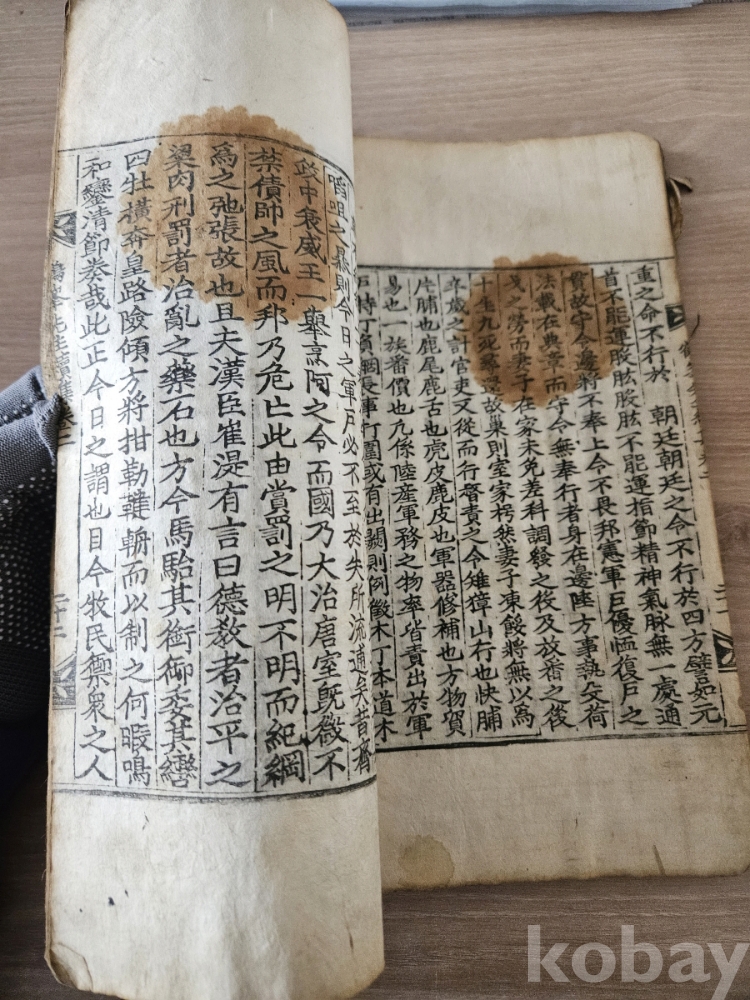 重之命不行於 朝廷朝廷之命不行於四方譬如元
首不能運股肱股肱不能運指節精神氣脉無一處通
貫故守令邊將不奉上令不畏邦憲軍巨優恤復戶之
法載在典章而守令無奉行者身在邊陲方事執殳荷
戈之勞而妻子在家未免差科調發之役及放番之後
十生九死尋還故巢則室家楞然妻子凍餒將無以爲
卒歲之計官吏又從而行督責之令雉獐山行也快脯
片脯也鹿尾鹿舌也虎皮鹿皮也軍器修補也方物貿
易也一族番價也九係陸産軍務之物率皆責出於軍
打圍或有出闕則例徵木丁本道木
啗咀之暴則今日之軍戶必不至於失所流逋矣昔齊
政中衰威王一舉烹阿之令而國乃大治唐室旣微不
禁債帥之風而邦乃危亡此由賞罰之明不明而紀綱
爲之弛張故也且夫漢臣崔湜有言曰德敎者治平之
梁肉刑罰者治亂之藥石也方今馬駘其銜御委其轡
四牡橫奔皇路險傾方將拑勒鞬輈而以制之何暇鳴
和鑾清節奏哉此正今日之謂也目今牧民禦衆之人
先生續集卷二
二十二
kobay